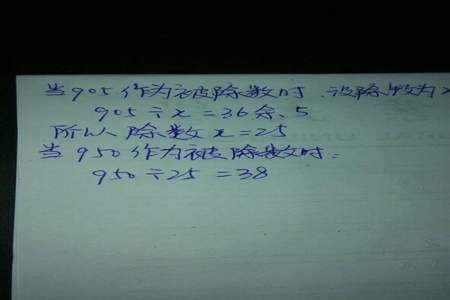 当905作为被除数时.被除数为x
905÷x=36余.5
所以除数x=25
当950作为被除数时.
950÷25=38